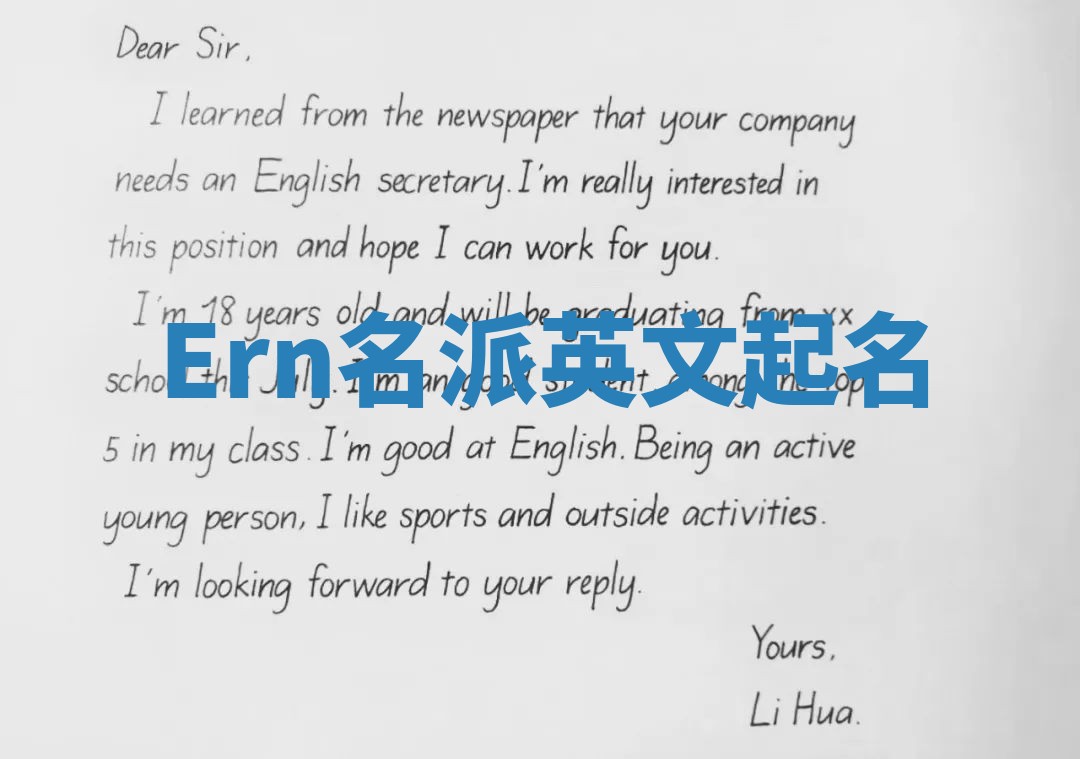 Dear Sir,
I learned from the newspaper that your company
needs an English secretary. I'm really interested in
this position and hope I can work for you.
I'm 18 years old and will be graduating from xx
Ern名派英文起名
July. I'm an good student
5 in my class. I'm good at English. Being an active
young person, I like sports and outside activities.
I'm looking forward to your reply.
Yours,
Li Hua.